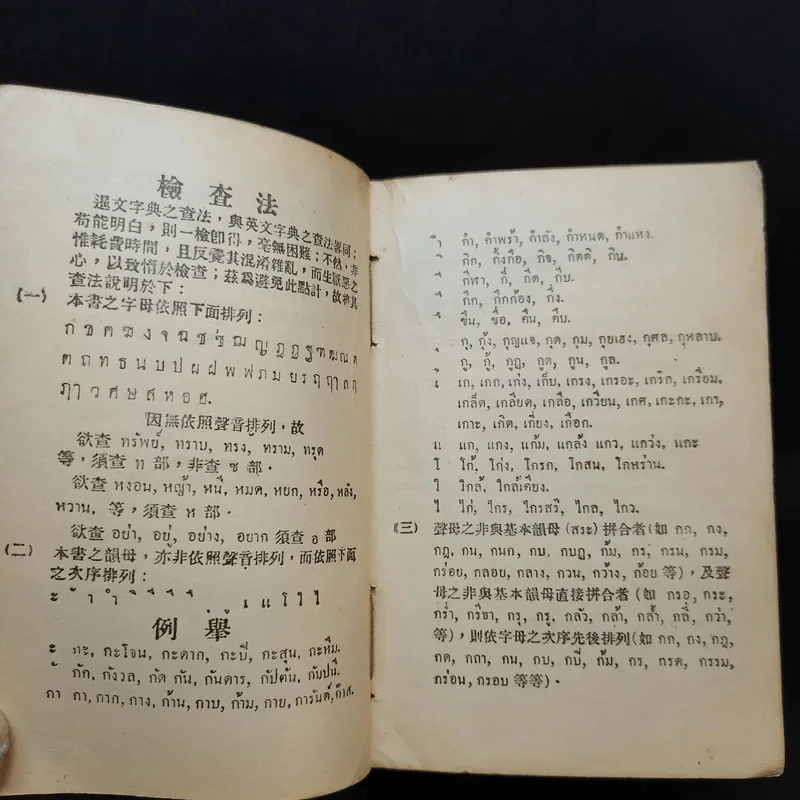 檢查法
暹文字典之查法，與英文字典之查法畧同；
苟能明白，則一檢卽得，毫無困難；不然，非
惟耗費時間，且反覺其混淆雜亂，而生厭惡之
心，以致惰於檢查；茲爲避免此點計，故將其
查法說明於下：
(一) 本書之字母依照下面排列：
ก ข ค ฆ ง จ ฉ ช ซ ฌ ญ ฎ ฏ ฐ ฑ ฒ ณ ด
ต ถ ท ธ น บ ป ผ ฝ พ ฟ ภ ม ย ร ฤ ฤา ล ฦ
ฦา ว ศ ษ ส ห อ ฮ.
因無依照聲音排列，故
欲查 ทรัพย์, ทราบ, ทรง, ทราม, ทรุด
等，須查 ท 部，非查 ซ 部．
欲查 หงอน, หญ้า, หนี, หมด, หยก, หรือ, หลัง,
หวาน, 等，須查 ห 部．
欲查 อย่า, อยู่, อย่าง, อยาก 須查 อ 部
(二) 本書之韻母，亦非依照聲音排列，而依照下面
之次序排列：
ะ ั า ำ ิ ี ึ ื ุ ู เ แ โ ใ ไ
例擧
ะ กะ, กะโจน, กะดาก, กะบี่, กะสุน, กะหึม.
ั กัก, กังวล, กัด กัน, กันดาร, กัปตัน, กัมปนี.
กา กา, กาก, กาง, ก้าน, กาบ, ก้าม, กาย, การันต์, ก๊าส.
ำ กำ, กำพร้า, กำลัง, กำหนด, กำแหง.
ิ กิก, กิ้งกือ, กิจ, กิตติ, กิน.
ี กีฬา, กี่, กีด, กีบ.
ึ กึก, กึกก้อง, กึ่ง.
ื ขืน, ชื่อ, คืน, คืบ.
ุ กุ, กุ้ง, กุญแจ, กุด, กุม, กุยเฮง, กุศล, กุหลาบ.
ู กู, กู้, กูฏ, กูด, กูน, กูล.
เ เก, เกก, เก่ง, เก็บ, เกรง, เกรอะ, เกริก, เกรียม,
เกล็ด, เกลียด, เกลือ, เกวียน, เกศ, เกะกะ, เกา,
เกาะ, เกิด, เกี่ยง, เกือก.
แ แก, แกง, แก้ม, แกลัง แกว, แกว่ง, แกะ
โ โก้, โก่ง, โกรก, โกสน, โกหร่าน.
ใ ใกล้, ใกล้เคียง.
ไ ไก่, ไกร, ไกรสรี, ไกล, ไกว.
(三) 聲母之非與基本韻母 (สระ) 拼合者 (如 กก, กง,
กฎ, กน, กนก, กบ, กบฏ, ก้ม, กร, กรน, กรม,
กร่อย, กลอย, กลาง, กวน, กว้าง, ก้อย 等)，及聲
母之非與基本韻母直接拼合者 (如 กรอ, กระ,
กรำ, กรีธา, กรุ, กรู, กลัว, กล้า, กล้ำ, กลี่, กว่า,
等)，則依字母之次序先後排列 (如 กก, กง, กฎ,
กด, กถา, กน, กบ, กบี่, ก้ม, กร, กรด, กรรม,
กร่อน, กรอบ 等等)．